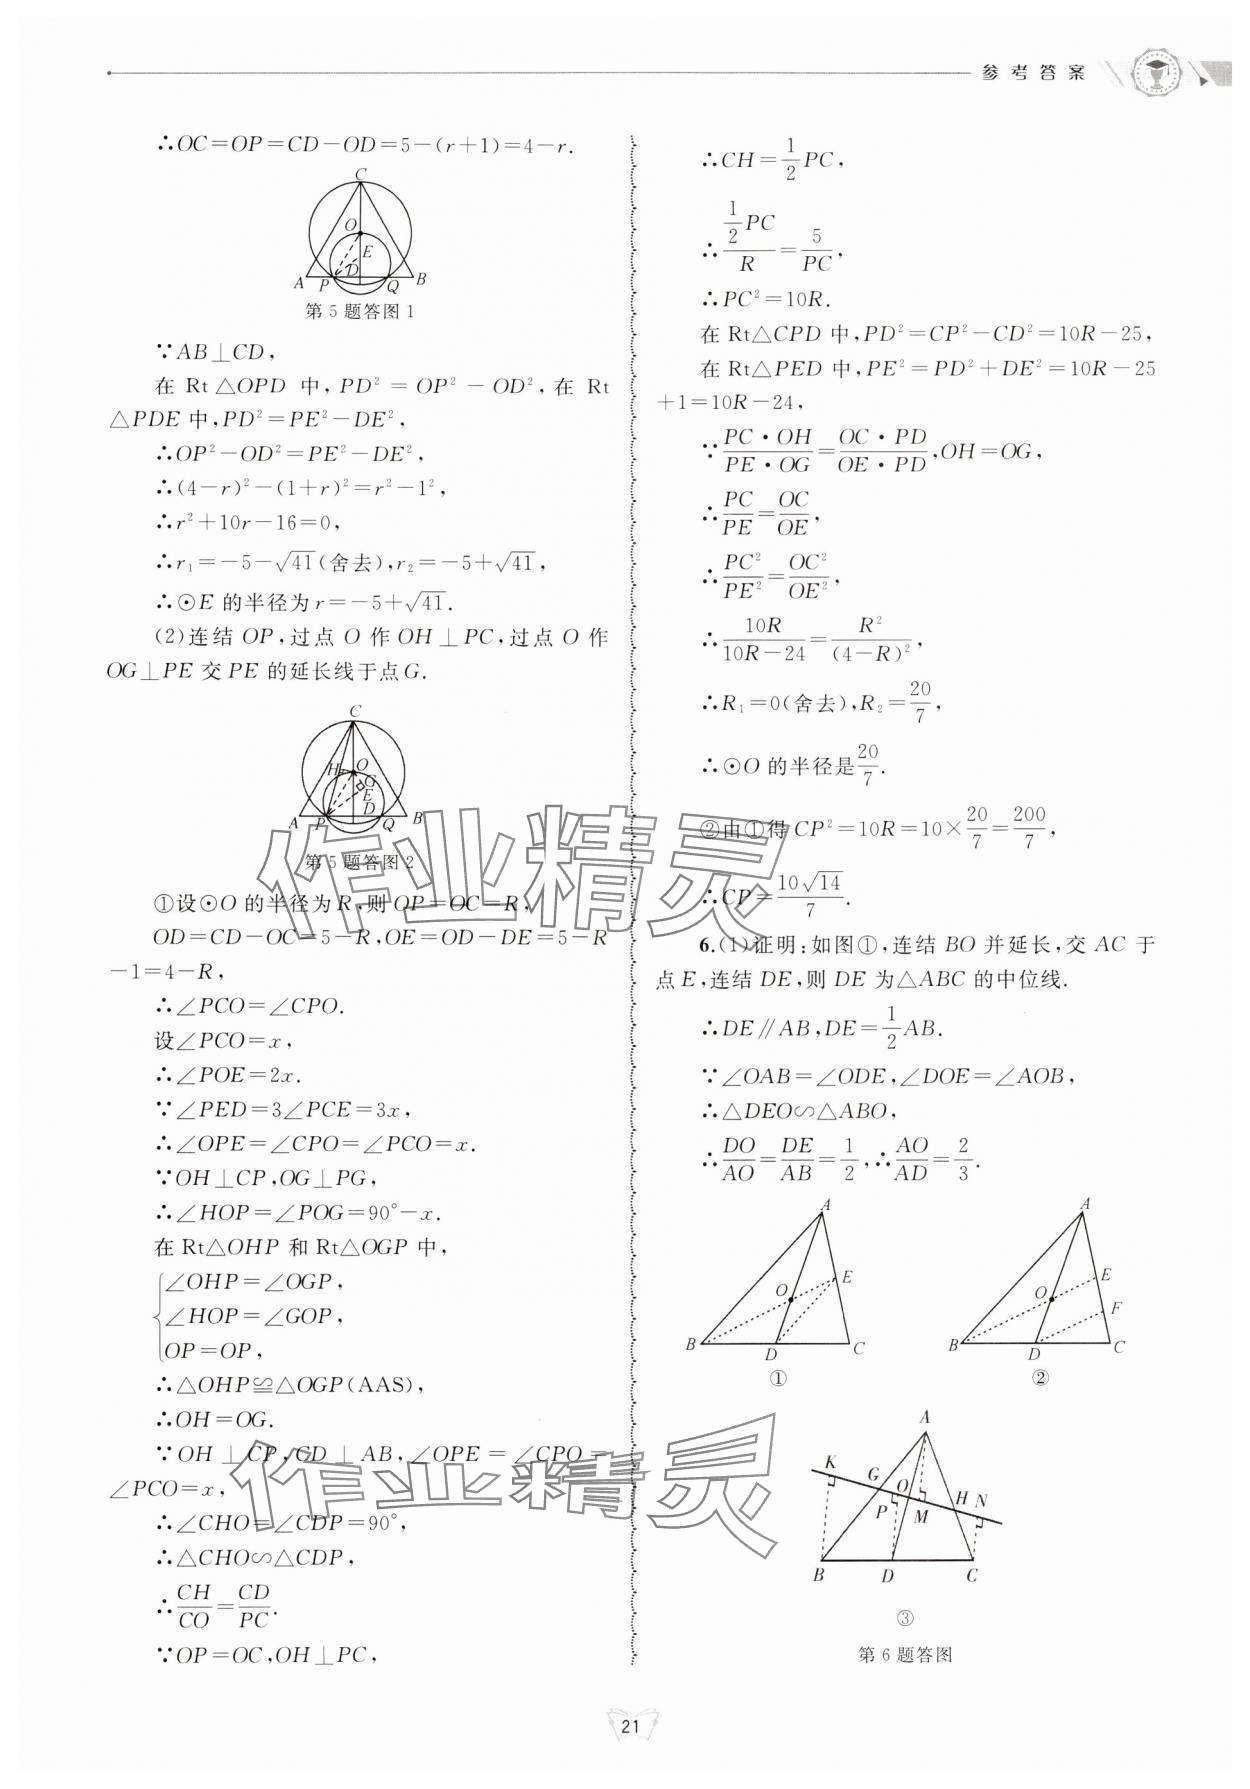 参考答案
∴OC=OP=CD-OD=5-(r+1)=4-r.
C
O
E
D
A P Q B
第5题答图1
∵AB⊥CD,
在 Rt△OPD 中,PD²=OP²-OD²,在 Rt
△PDE 中,PD²=PE²-DE²,
∴OP²-OD²=PE²-DE²,
∴(4-r)²-(1+r)²=r²-1²,
∴r²+10r-16=0,
∴r₁=-5-√41(舍去),r₂=-5+√41,
∴⊙E 的半径为 r=-5+√41.
(2)连结 OP,过点 O 作 OH⊥PC,过点 O 作
OG⊥PE 交 PE 的延长线于点 G.
C
H O
G
E
D
A P Q B
第5题答图2
①设⊙O 的半径为 R,则 OP=OC=R,
OD=CD-OC=5-R,OE=OD-DE=5-R
-1=4-R,
∴∠PCO=∠CPO.
设∠PCO=x,
∴∠POE=2x.
∵∠PED=3∠PCE=3x,
∴∠OPE=∠CPO=∠PCO=x.
∵OH⊥CP,OG⊥PG,
∴∠HOP=∠POG=90°-x.
在 Rt△OHP 和 Rt△OGP 中,
∠OHP=∠OGP,
∠HOP=∠GOP,
OP=OP,
∴△OHP≌△OGP(AAS),
∴OH=OG.
∵OH⊥CP,CD⊥AB,∠OPE=∠CPO=
∠PCO=x,
∴∠CHO=∠CDP=90°,
∴△CHO∽△CDP,
∴CH/CO=CD/PC.
∵OP=OC,OH⊥PC,
∴CH=1/2PC,
∴(1/2PC)/R=5/PC,
∴PC²=10R.
在 Rt△CPD 中,PD²=CP²-CD²=10R-25,
在 Rt△PED 中,PE²=PD²+DE²=10R-25
+1=10R-24,
∵PC·OH/PE·OG=OC·PD/OE·PD,OH=OG,
∴PC/PE=OC/OE,
∴PC²/PE²=OC²/OE²,
∴10R/(10R-24)=R²/(4-R)²,
∴R₁=0(舍去),R₂=20/7,
∴⊙O 的半径是20/7.
②由①得 CP²=10R=10×20/7=200/7,
∴CP=10√14/7.
6.(1)证明:如图①,连结 BO 并延长,交 AC 于
点 E,连结 DE,则 DE 为△ABC 的中位线.
∴DE∥AB,DE=1/2AB.
∵∠OAB=∠ODE,∠DOE=∠AOB,
∴△DEO∽△ABO,
∴DO/AO=DE/AB=1/2,∴AO/AD=2/3.
A
E
O
B D C
①
A
E
O
F
B D C
②
A
K G O H N
P M
B D C
③
第6题答图
作业精灵
作业精灵
21